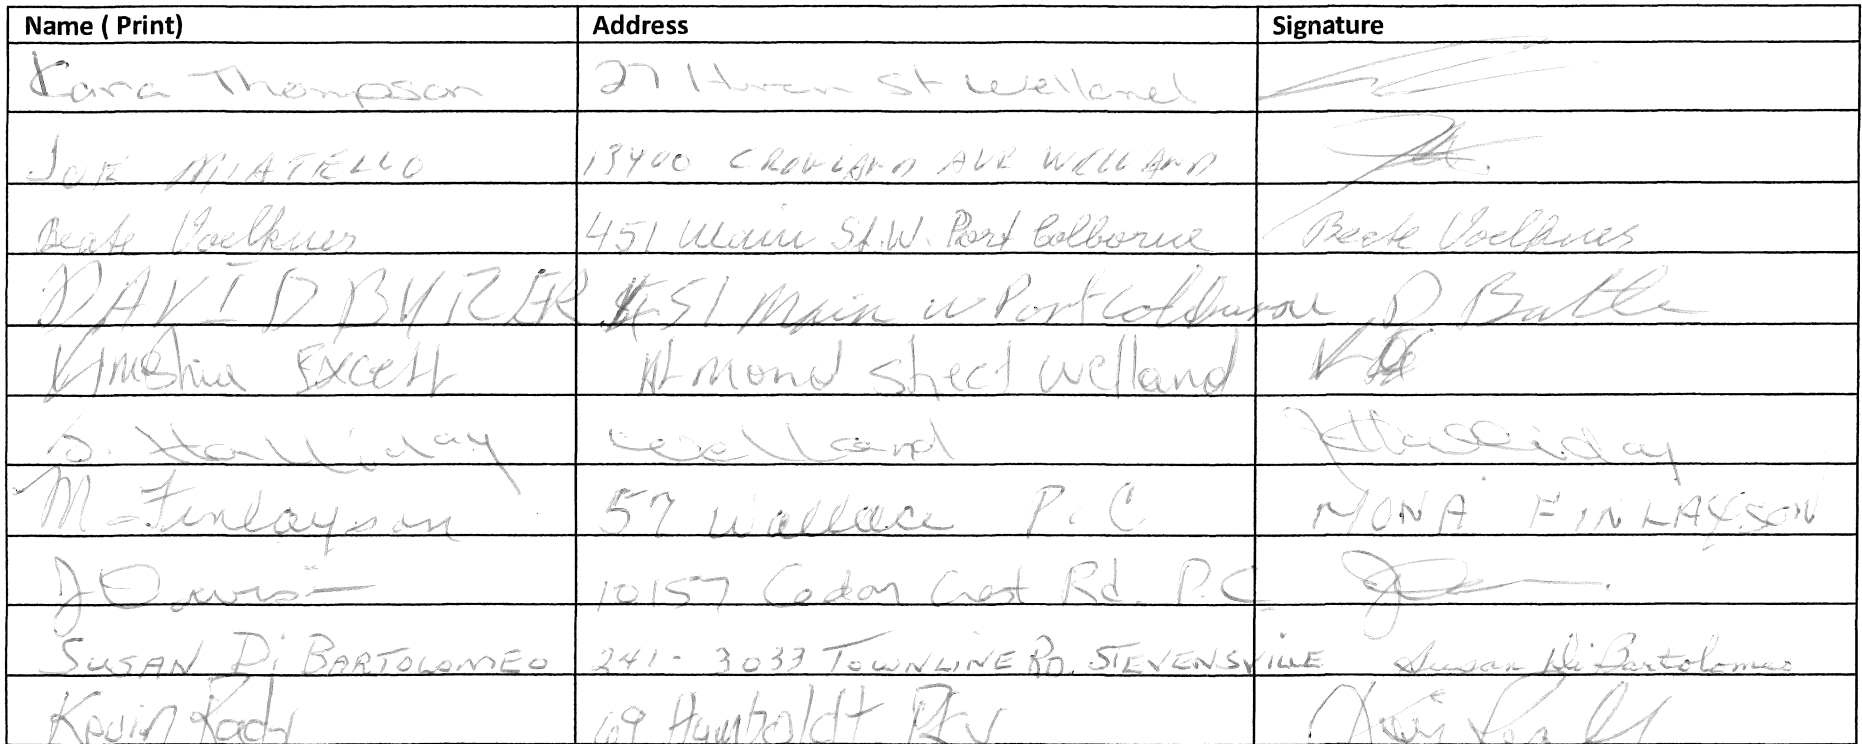 Name ( Print) Address Signature
Kara Thompson 27 Huron St Welland
JOE MIATELLO 13400 CROWLAND AVE WELLAND
Beate Voelkner 451 Main St. W. Port Colborne Beate Voelkner
DAVID BUTLER 451 Main W Port Colborne D Butler
Excell Street Welland
S. Halliday Welland Halliday
M Finlayson 57 Wallace P.C MONA FINLAYSON
J 10157 Crest Rd. P.C
SUSAN Di BARTOLOMEO 241 - 3033 TOWNLINE RD. STEVENSVILLE Susan Di Bartolomeo
Kevin 69 Humboldt Pkv